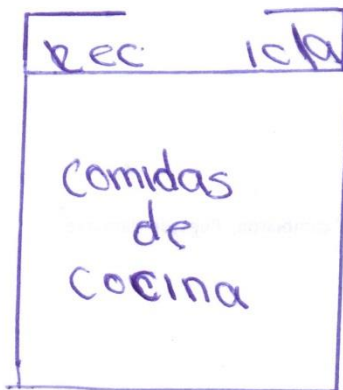 Rec icla
comidas
de
cocina